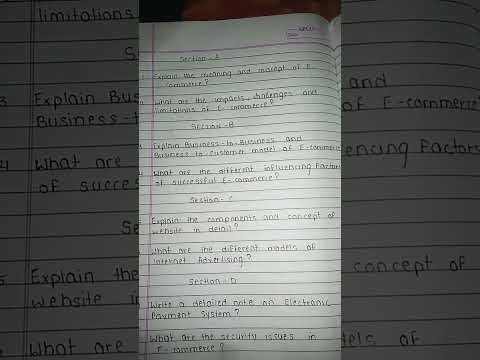 Section - A
Explain the meaning and concept of E-
commerce?
What are the impacts, challenges and
limitations of E-commerce?
Section - B
Explain Business-to-Business and
Business-to customer model of E-commerce
What are the different influencing Factors
of successful E-commerce?
Section - C
Explain the components and concept of
website in detail?
What are the different models of
Internet Advertising?
Section - D
Write a detailed note on Electronic
Payment System?
What are the security issues in
E-commerce?
limitations
S
3 Explain Bus
Business-t
4 What are
of succes
Se
5 Explain the
website in
What are
and
of E-commerce?
encing Factors
concept of
dels of